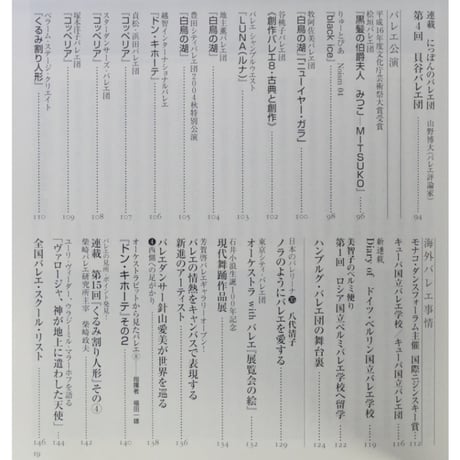 連載 にっぽんのバレエ団
第4回 貝谷バレエ団 山野博大(バレエ評論家) 94
バレエ公演
平成16年度文化庁芸術祭大賞受賞
松崎バレエ団
『黒髪の伯爵夫人 みつこ―MITSUKO』 96
りゅーとぴあ Noism 04
『black ice』 98
牧阿佐美バレヱ団
『白鳥の湖』『ニューイヤー・ガラ』 100
谷桃子バレエ団
《創作バレエ8・古典と創作》 102
バレエ シャンブルウエスト
『LUNA(ルナ)』 103
地主薫バレエ団
『白鳥の湖』 104
豊田シティバレエ団2004秋特別公演
『白鳥の湖』 105
越智インターナショナルバレエ
『ドン・キホーテ』 106
貞松・浜田バレエ団
『コッペリア』 107
スターダンサーズ・バレエ団
『コッペリア』 108
塚本洋子バレエ団
『コッペリア』 109
ベラーム・ステージ・クリエイト
『くるみ割り人形』 110
海外バレエ事情
モナコ・ダンスフォーラム主催 国際ニジンスキー賞 112
キューバ国立バレエ学校 キューバ国立バレエ団 116
新連載
Diary of ドイツ・ベルリン国立バレエ学校 119
美智子のペルミ便り
第1回 ロシア国立ペルミバレエ学校へ留学 122
ハンブルク・バレエ団の舞台裏 124
日本のバレリーナ 八代清子
ノラのようにバレエを愛する 129
東京シティ・バレエ団
オーケストラ with バレエ『展覧会の絵』 132
石井小浪生誕100年記念
現代舞踊作品展 134
芳賀啓バレエギャラリーオープン
バレエの情熱をキャンバスで表現する
新進のアーティスト 136
バレエダンサー針山愛美が世界を巡る
④西側への足がかり 138
オーケストラピットから見たバレエ 指揮者 福田一雄
『ドン・キホーテ』その2 140
バレエの見所、ポイント発見!
連載 第15回『くるみ割り人形』その④
柴崎バレエ研究所主宰 柴崎政夫 142
ユーリ・ヴェーダー、ウラジーミル・マラーホフを語る
『ヴァロージャ、神が地上に遣わした天使』 144
全国バレエ・スクール・リスト 146
19